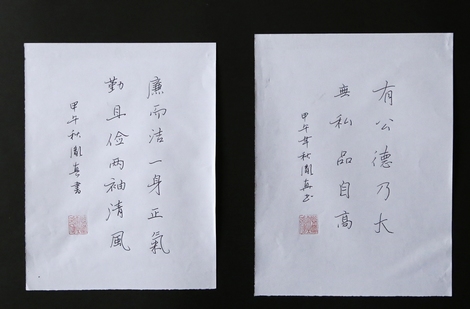 廉而洁一身正氣
勤且俭两袖清風
甲午秋書
有公德乃大
無私品自高
甲午年秋书